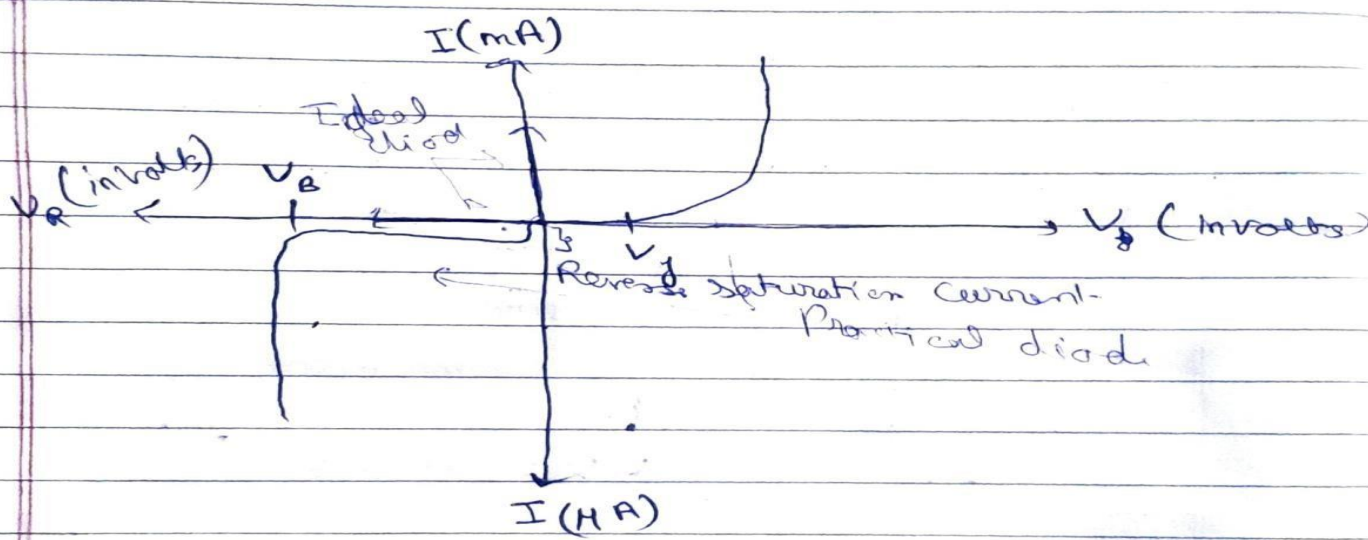 I(mA)
Ideal
diod
(in volts)
V_B
V_R
V_γ
(involts)
Reverse saturation current-
Practical diod
I(μA)